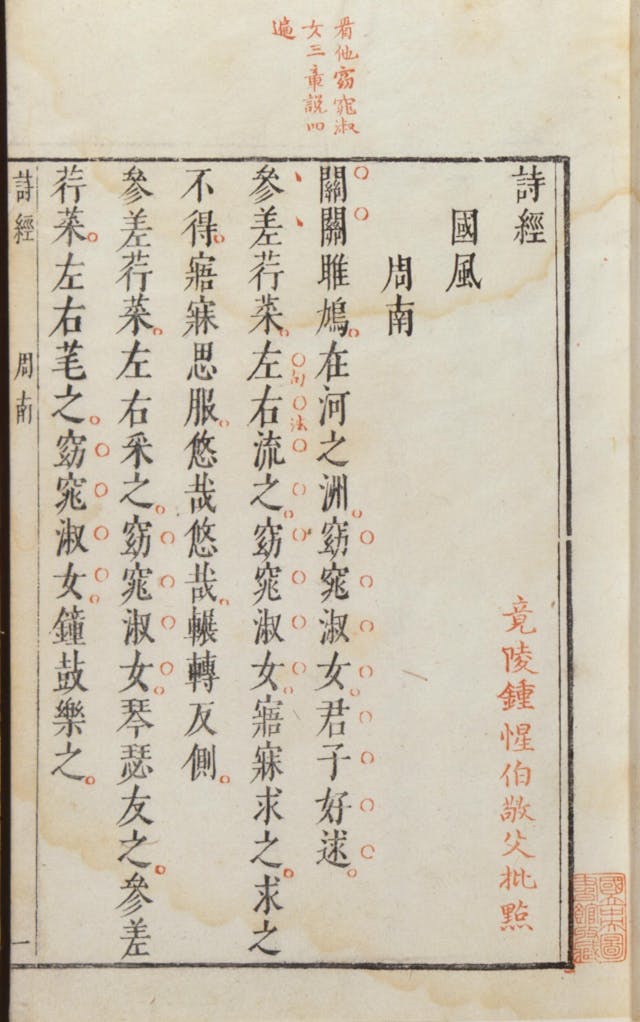 看他窈窕淑
女三章說四
遍
詩經
竟陵鍾惺伯敬父批點
國風
周南
關關雎鳩在河之洲窈窕淑女君子好逑
句法
參差荇菜左右流之窈窕淑女寤寐求之求之
不得寤寐思服悠哉悠哉輾轉反側
參差荇菜左右采之窈窕淑女琴瑟友之參差
荇菜左右芼之窈窕淑女鐘鼓樂之
詩經 周南 一